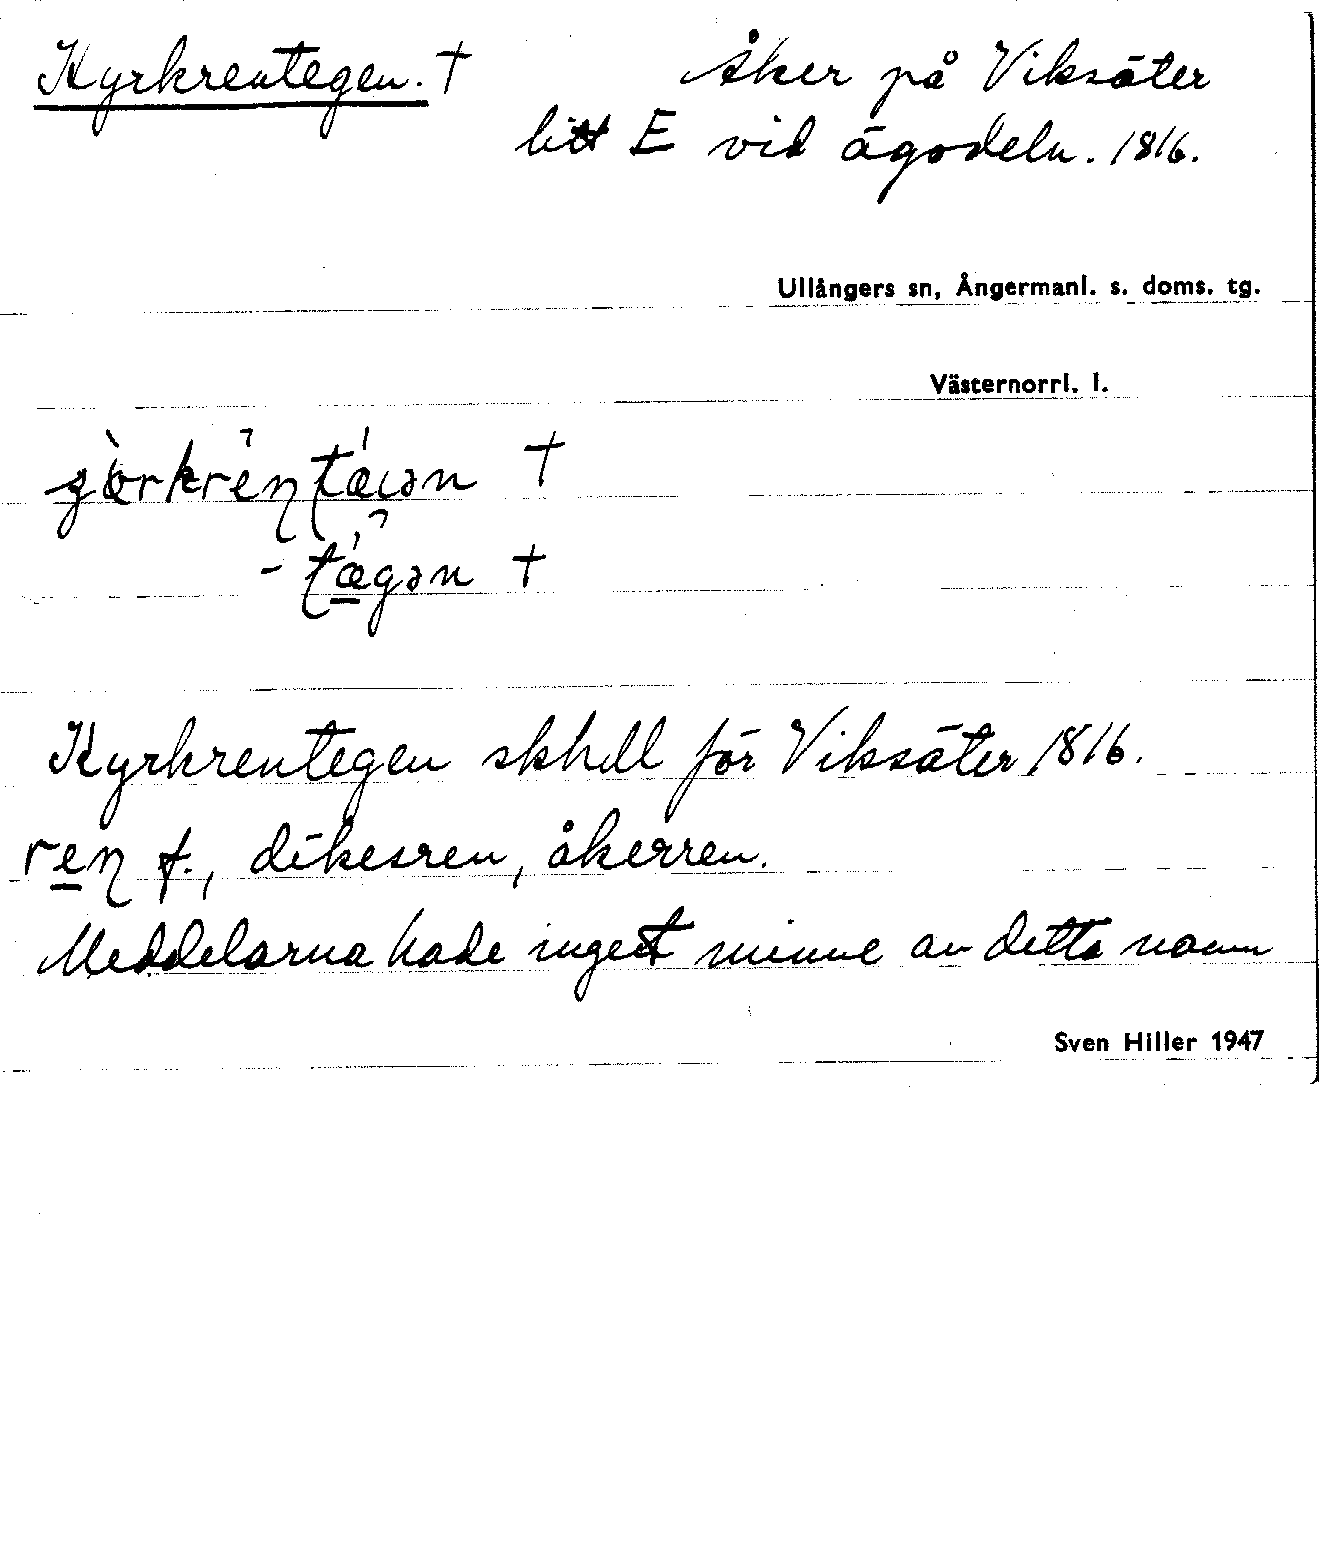 Kyrkrentegen. †
Åker på Viksäter
litt E vid ägodeln. 1816.
Ullångers sn, Ångermanl. s. doms. tg.
Västernorrl. l.
†
†
Kyrkrentegen skhdl för Viksäter 1816.
ren f., dikesren, åkerren.
Meddelarna hade inget minne av detta namn
Sven Hiller 1947